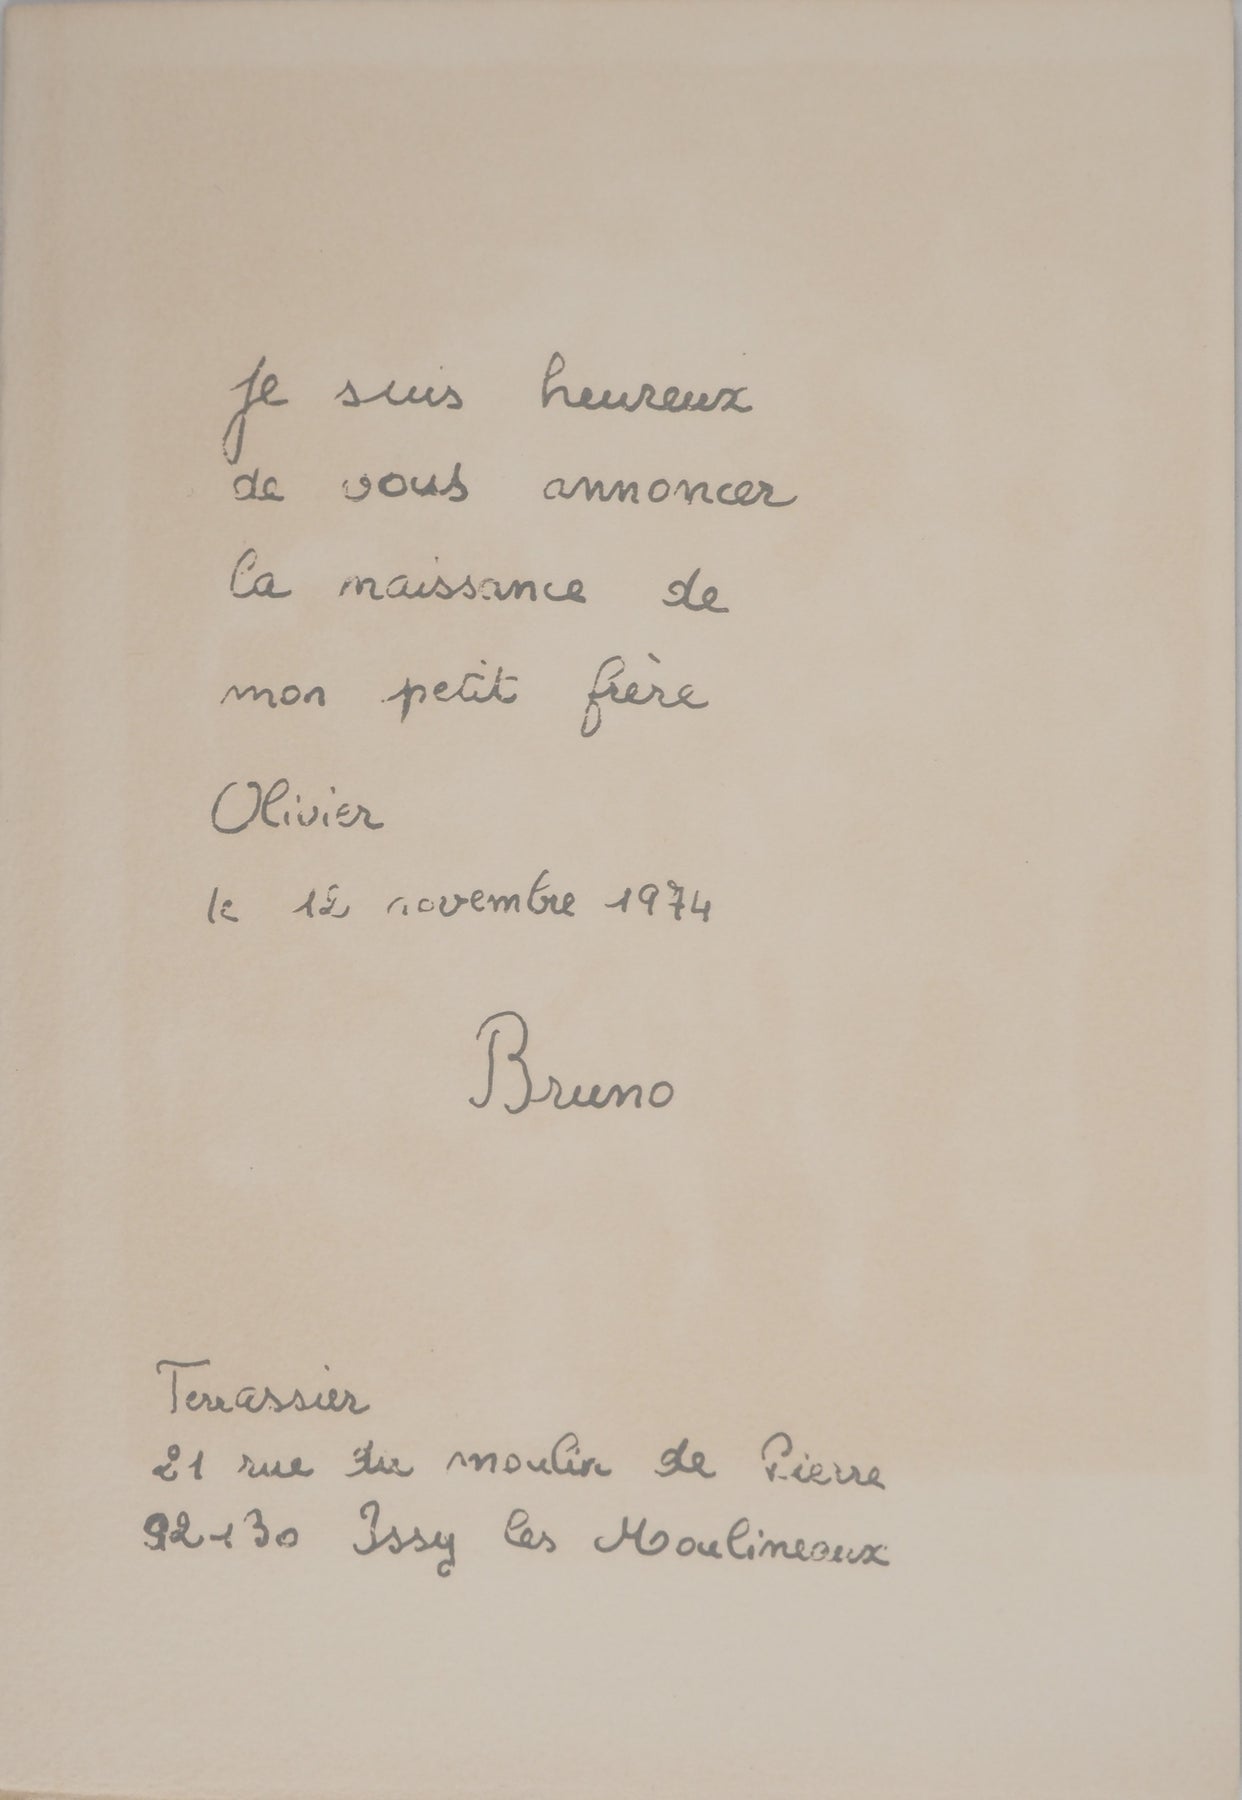 Je suis heureux
de vous annoncer
la naissance de
mon petit frère
Olivier
le 12 novembre 1974
Bruno
Terrassier
21 rue du moulin de Pierre
92130 Issy les Moulineaux